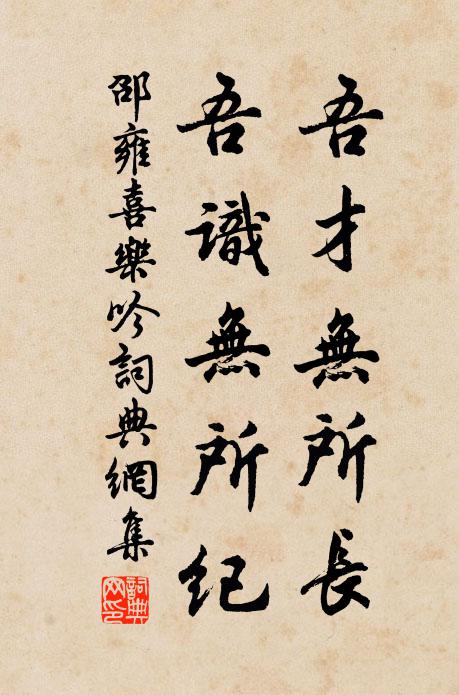 吾才無所長
吾識無所紀
邵雍喜樂吟詞典網集
詞典
網印